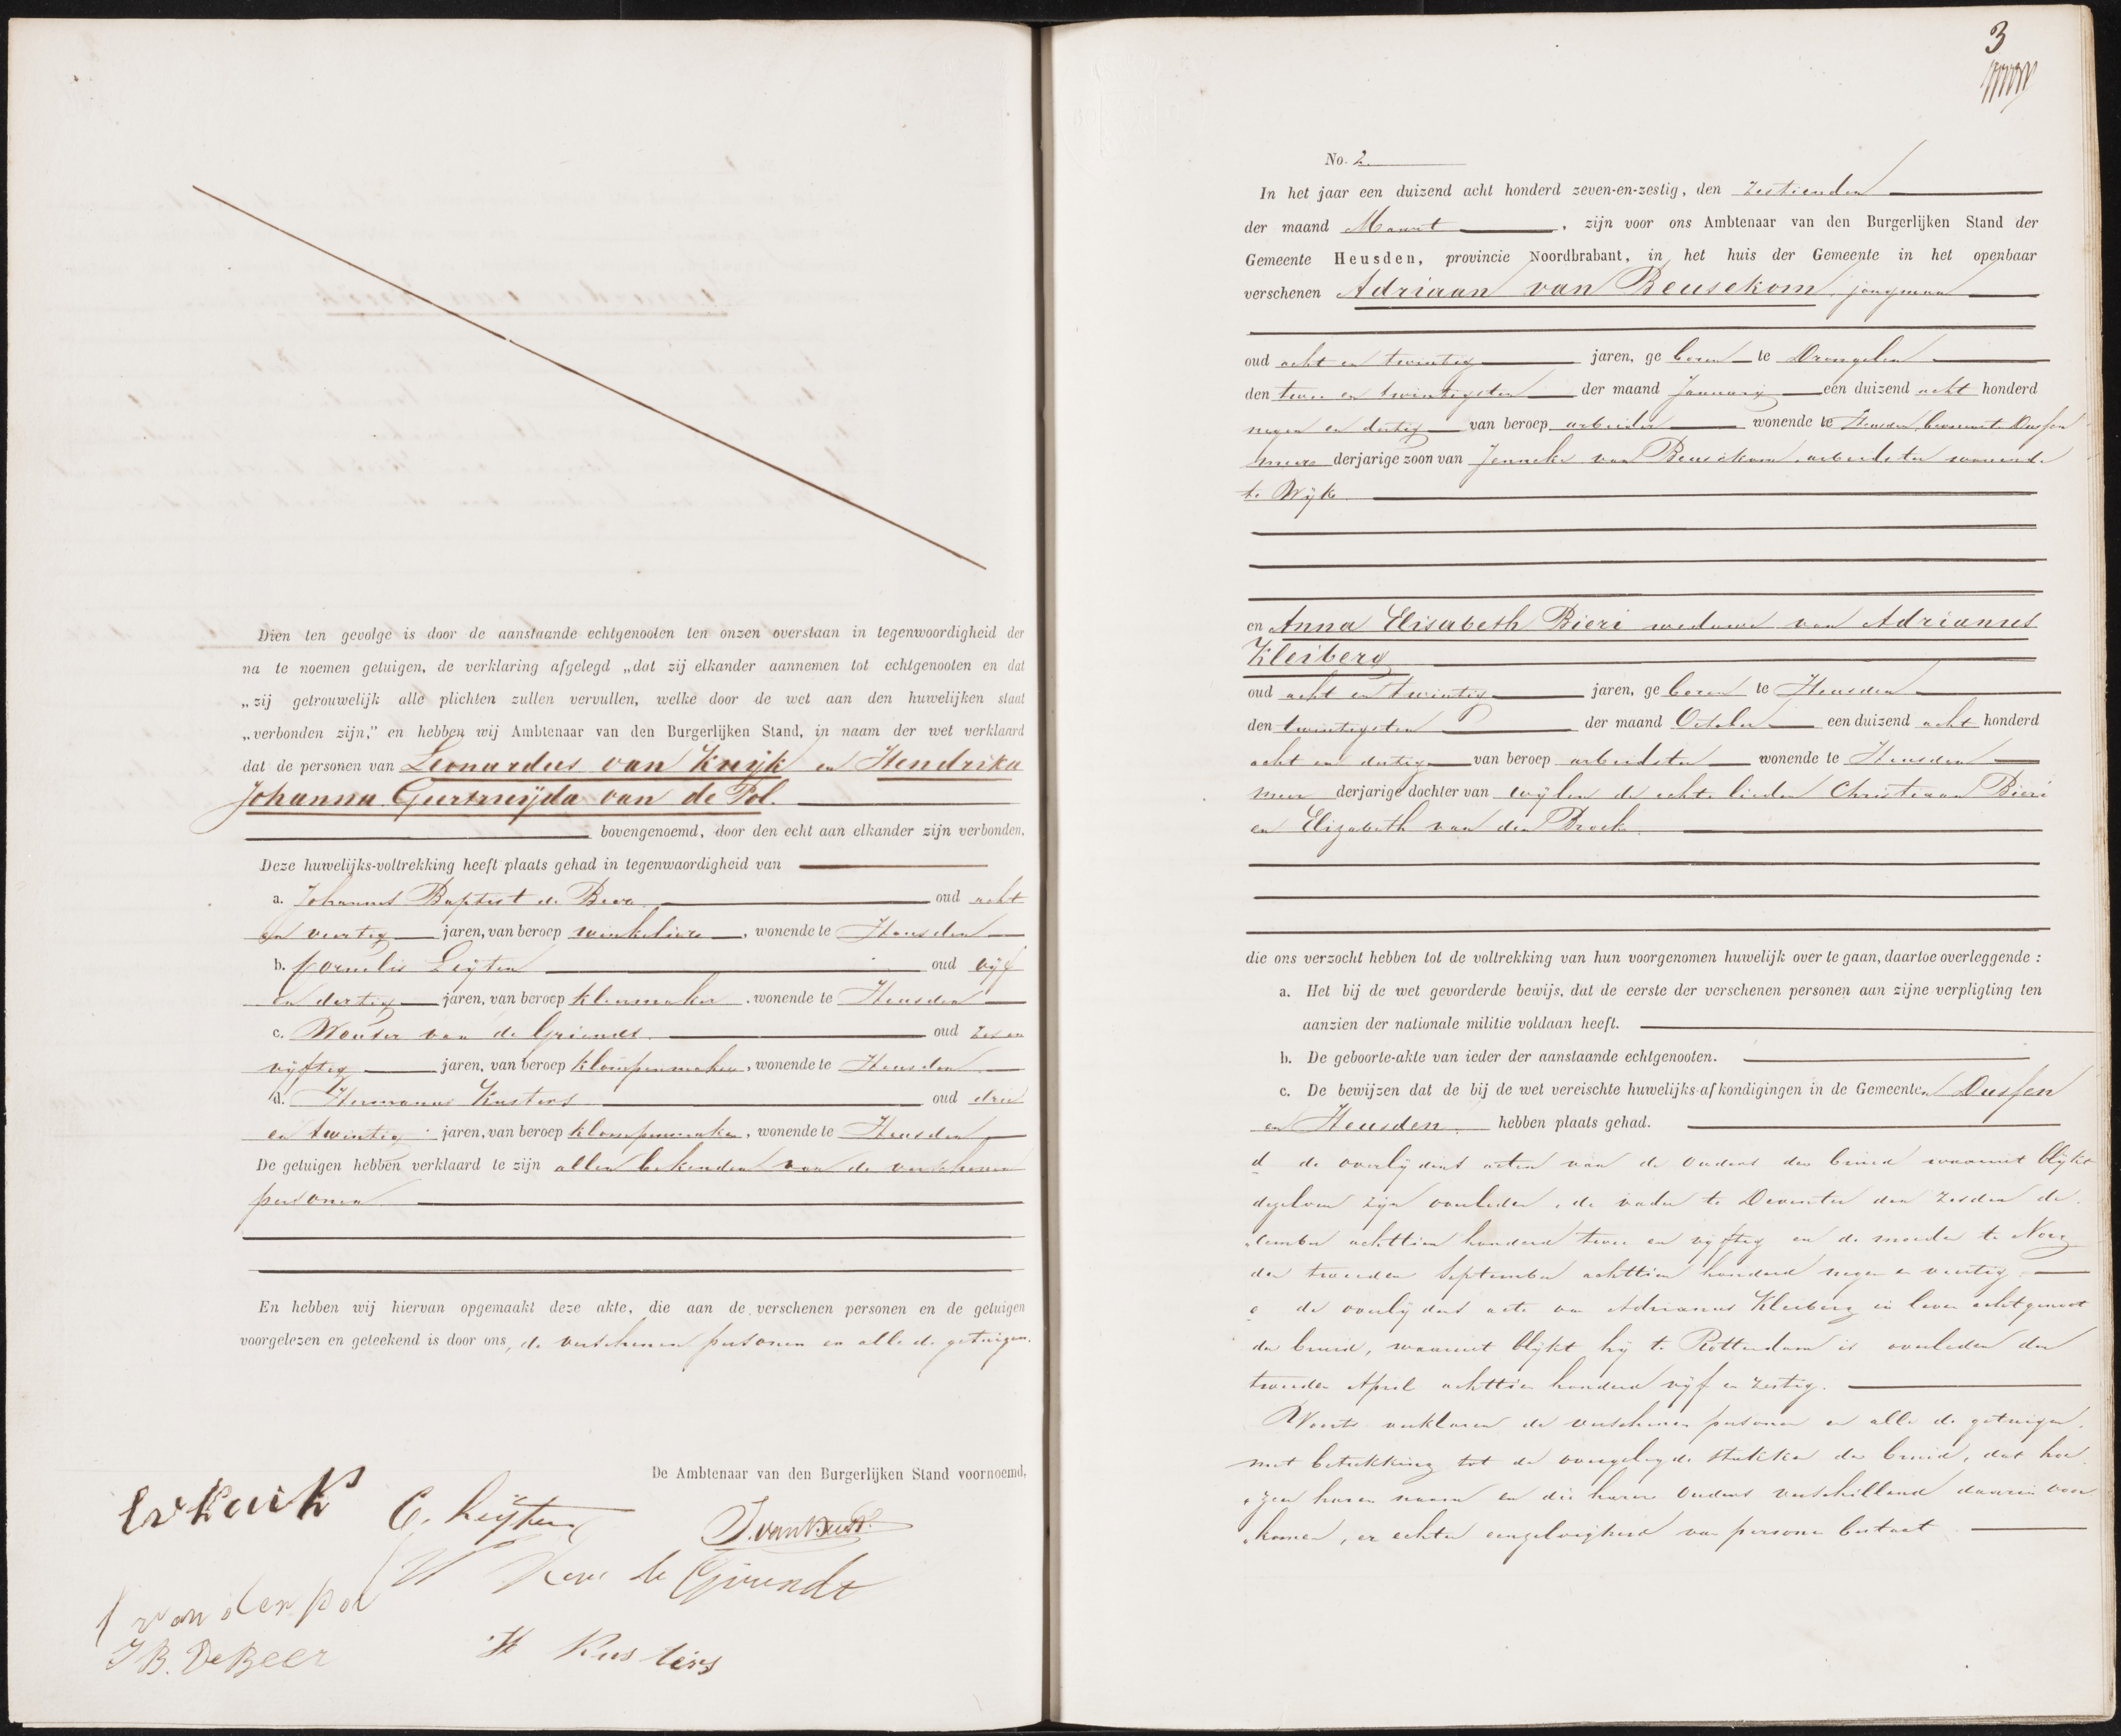 Dien ten gevolge is door de aanstaande echtgenooten ten onzen overstaan in tegenwoordigheid der
na te noemen getuigen, de verklaring afgelegd „dat zij elkander aannemen tot echtgenooten en dat
„zij getrouwelijk alle plichten zullen vervullen, welke door de wet aan den huwelijken staat
„verbonden zijn," en hebben wij Ambtenaar van den Burgerlijken Stand, in naam der wet verklaard
dat de personen van Leonardus van Kuijk en Hendrika
Johanna Geertruijda van de Pol.
bovengenoemd, door den echt aan elkander zijn verbonden.
Deze huwelijks-voltrekking heeft plaats gehad in tegenwoordigheid van
a. Johannes Baptist de Beer oud acht
en veertig jaren, van beroep winkelier, wonende te Heusden
b. Cornelis Leijten oud vijf
en dertig jaren, van beroep kleermaker, wonende te Heusden
c. Wouter van de Griendt oud zes en
vijftig jaren, van beroep klompenmaker, wonende te Heusden
d. Hermanus Kusters oud drie
en twintig jaren, van beroep klompenmaker, wonende te Heusden
De getuigen hebben verklaard te zijn allen bekenden van de verschenen
personen.
En hebben wij hiervan opgemaakt deze akte, die aan de verschenen personen en de getuigen
voorgelezen en geteekend is door ons, de verschenen personen en alle de getuigen.
De Ambtenaar van den Burgerlijken Stand voornoemd,
Lv Kuik C. Leijten
van der pol
W van de Griendt
JB. DeBeer H Kusters
3
No. 2.
In het jaar een duizend acht honderd zeven-en-zestig, den zestienden
der maand Maart, zijn voor ons Ambtenaar van den Burgerlijken Stand der
Gemeente Heusden, provincie Noordbrabant, in het huis der Gemeente in het openbaar
verschenen Adriaan van Beusekom, jongman
oud acht en twintig jaren, geboren te Drongelen
den twee en twintigsten der maand Januarij een duizend acht honderd
negen en dertig van beroep arbeider wonende te Heusden, bevorens te Dussen
meerderjarige zoon van Jenneke van Beusekom, arbeidster wonende
te Wijk.
en Anna Elisabeth Bieri weduwe van Adrianus
Kleiberg
oud acht en twintig jaren, geboren te Heusden
den twintigsten der maand October een duizend acht honderd
acht en dertig van beroep arbeidster wonende te Heusden
meerderjarige dochter van wijlen de echte lieden Christiaan Bieri
en Elizabeth van den Broek.
die ons verzocht hebben tot de voltrekking van hun voorgenomen huwelijk over te gaan, daartoe overleggende:
a. Het bij de wet gevorderde bewijs, dat de eerste der verschenen personen aan zijne verpligting ten
aanzien der nationale militie voldaan heeft.
b. De geboorte-akte van ieder der aanstaande echtgenooten.
c. De bewijzen dat de bij de wet vereischte huwelijks-afkondigingen in de Gemeenten Dussen
en Heusden hebben plaats gehad.
d de overlijdens acten van de ouders der bruid waaruit blijkt
dezelven zijn overleden, de vader te Deventer den zesden de-
cember achttien honderd twee en vijftig en de moeder te
den tweeden September achttien honderd negen en veertig.
e de overlijdens acte van Adrianus Kleiberg in leven echtgenoot
der bruid, waaruit blijkt hij te Rotterdam is overleden den
tweeden April achttien honderd vijf en zestig.
Voorts verklaren de verschenen personen en alle de getuigen
met betrekking tot de overgelegde stukken der bruid, dat hoe-
zeer haren naam en die harer ouders verschillend daarin voor-
komen, er echter eenzelvigheid van persoon bestaat.